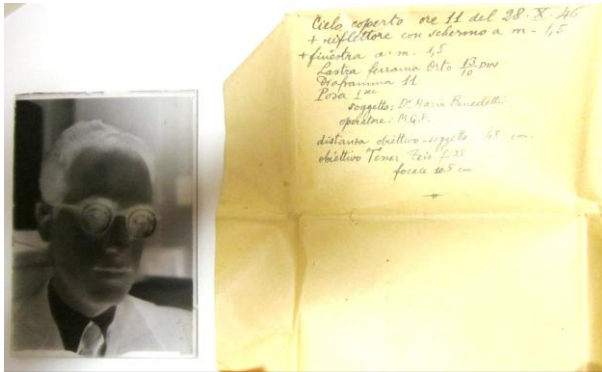 Cielo coperto ore 11 del 28. X. 46
+ riflettore con schermo a m - 1,5
+ finestra a m. 1,5
Lastra ferrania Orto 13/10 DIN
Diaframma 11
Posa 1
soggetto: Dr. Benedetti
operatore: M.G.F.
distanza obiettivo-soggetto 45 cm.
obiettivo
focale 10.5 cm